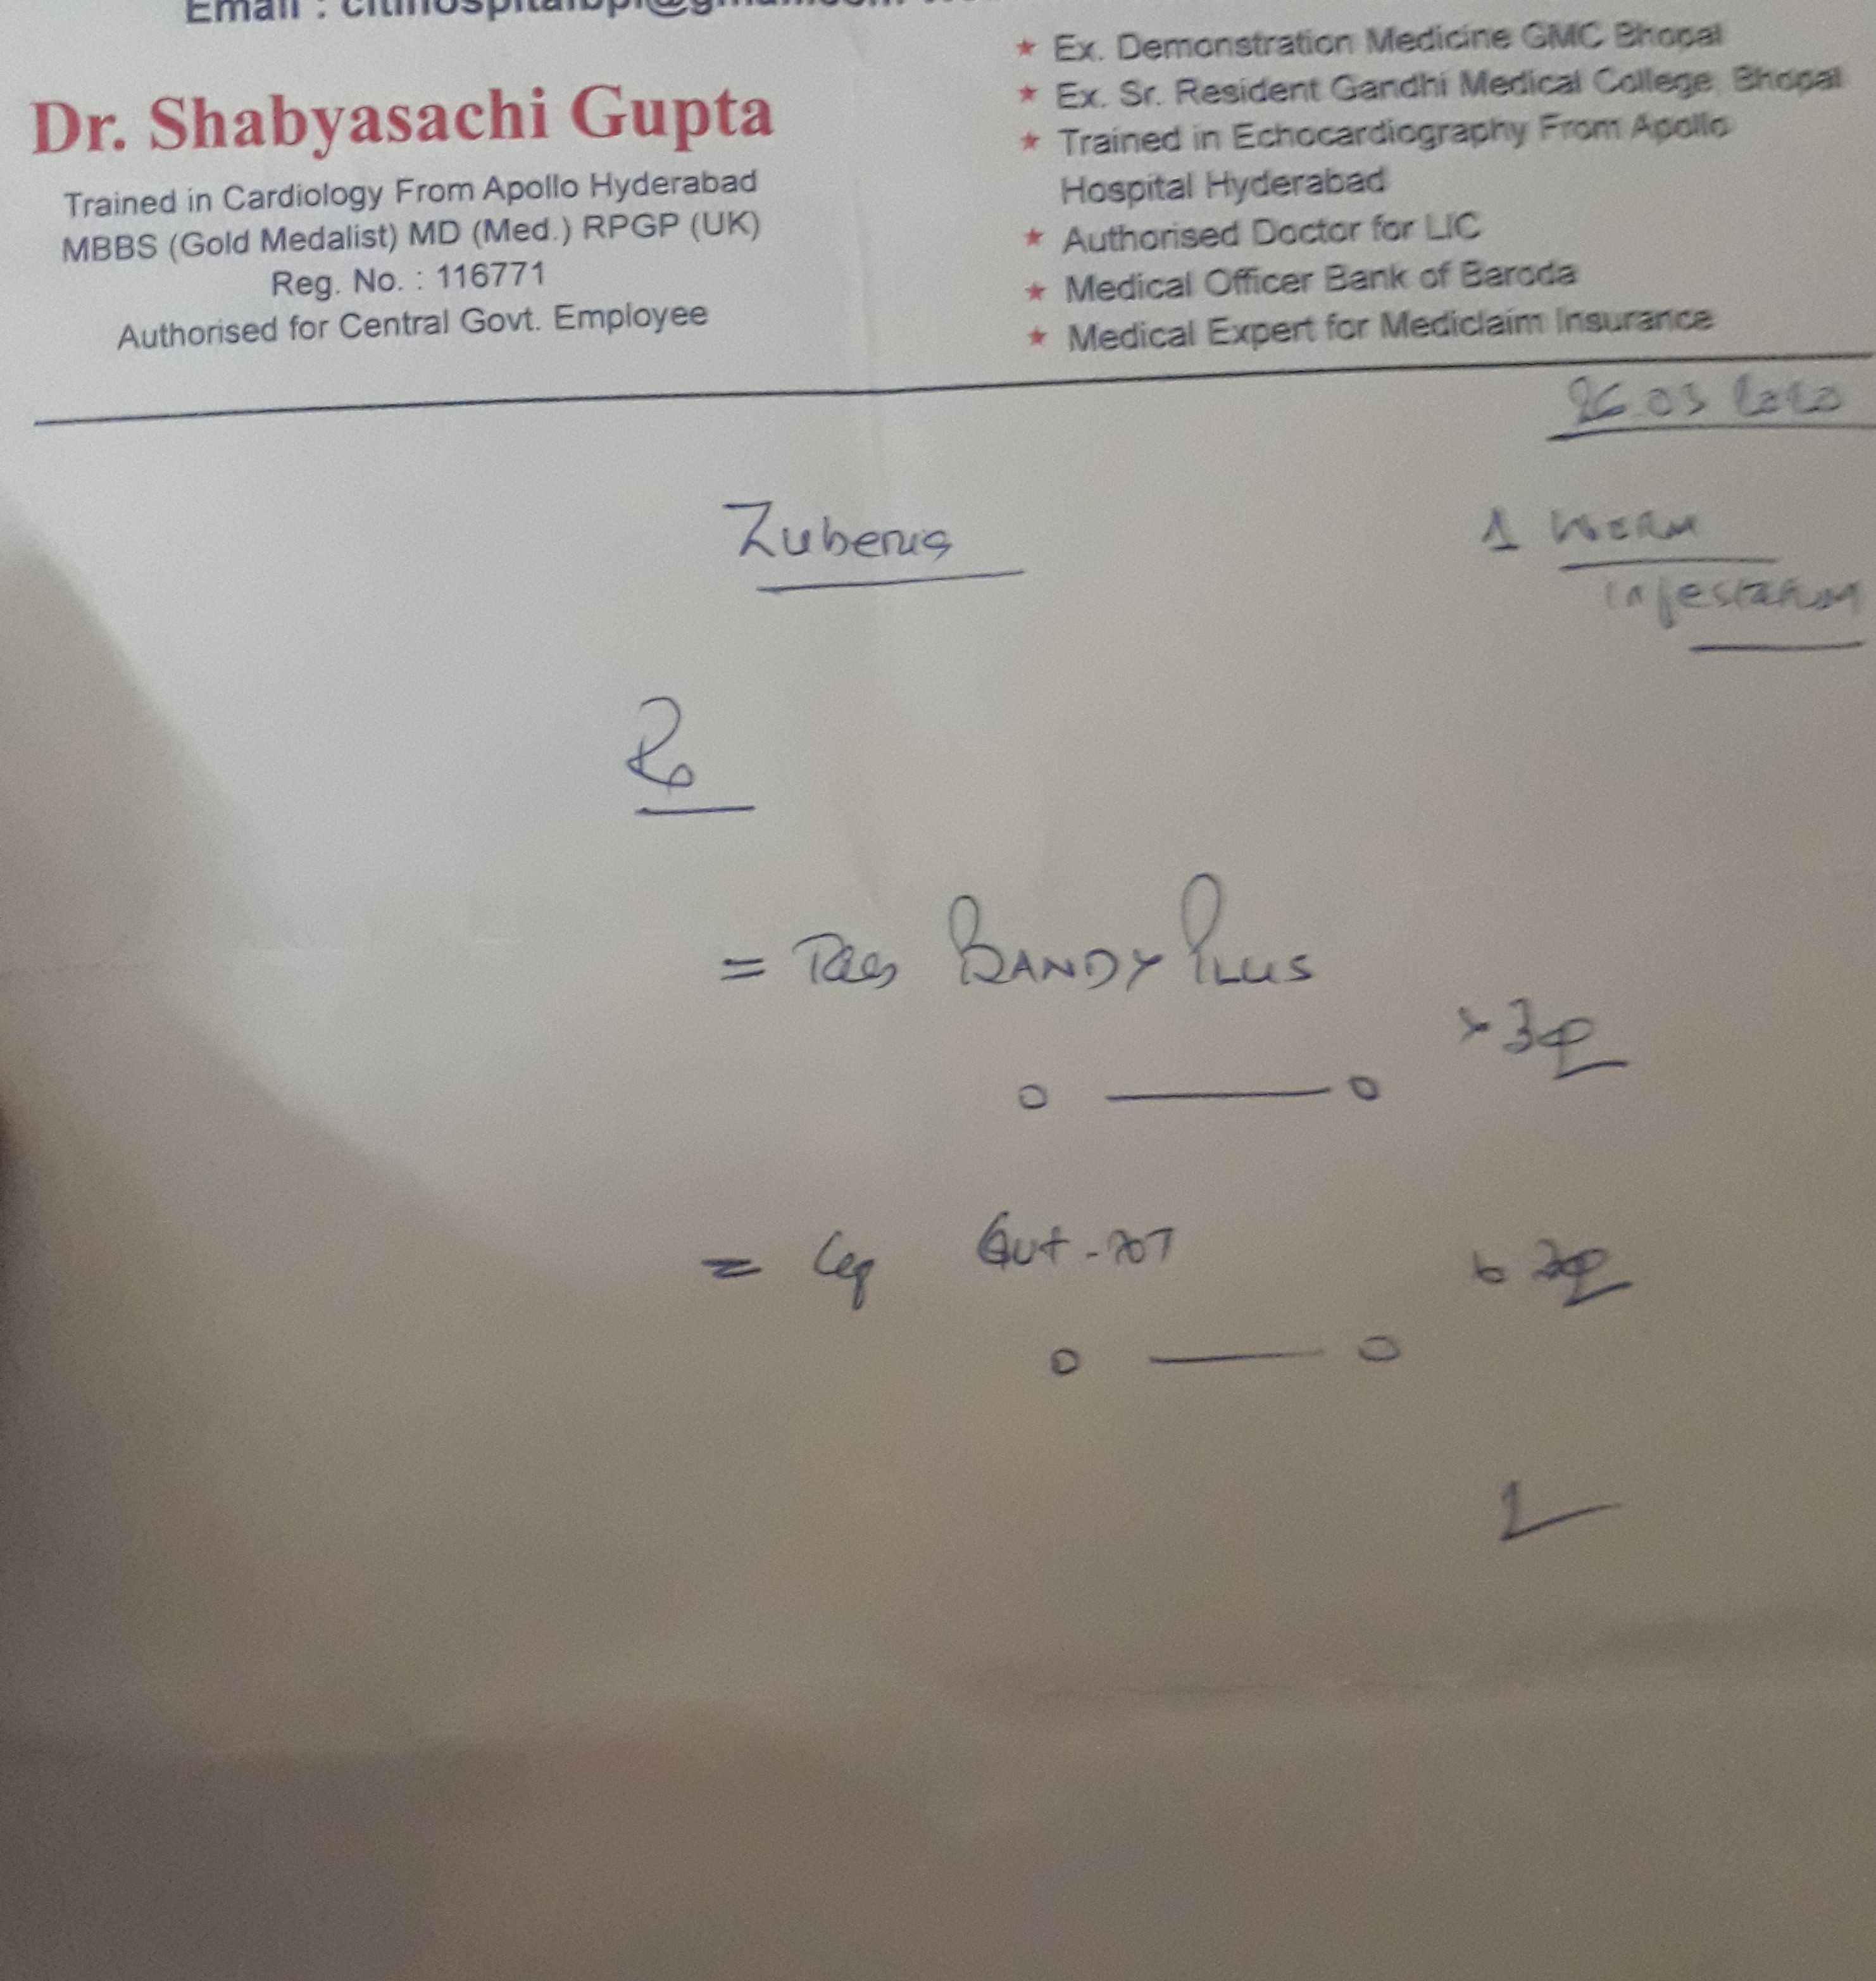 Email : citihospitalbpl@gmail.com
Dr. Shabyasachi Gupta
Trained in Cardiology From Apollo Hyderabad
MBBS (Gold Medalist) MD (Med.) RPGP (UK)
Reg. No. : 116771
Authorised for Central Govt. Employee
★ Ex. Demonstration Medicine GMC Bhopal
★ Ex. Sr. Resident Gandhi Medical College, Bhopal
★ Trained in Echocardiography From Apollo
Hospital Hyderabad
★ Authorised Doctor for LIC
★ Medical Officer Bank of Baroda
★ Medical Expert for Mediclaim Insurance
Worm
Infestation
Rx
= BANDY PLUS
0 — 0
=
0 — 0